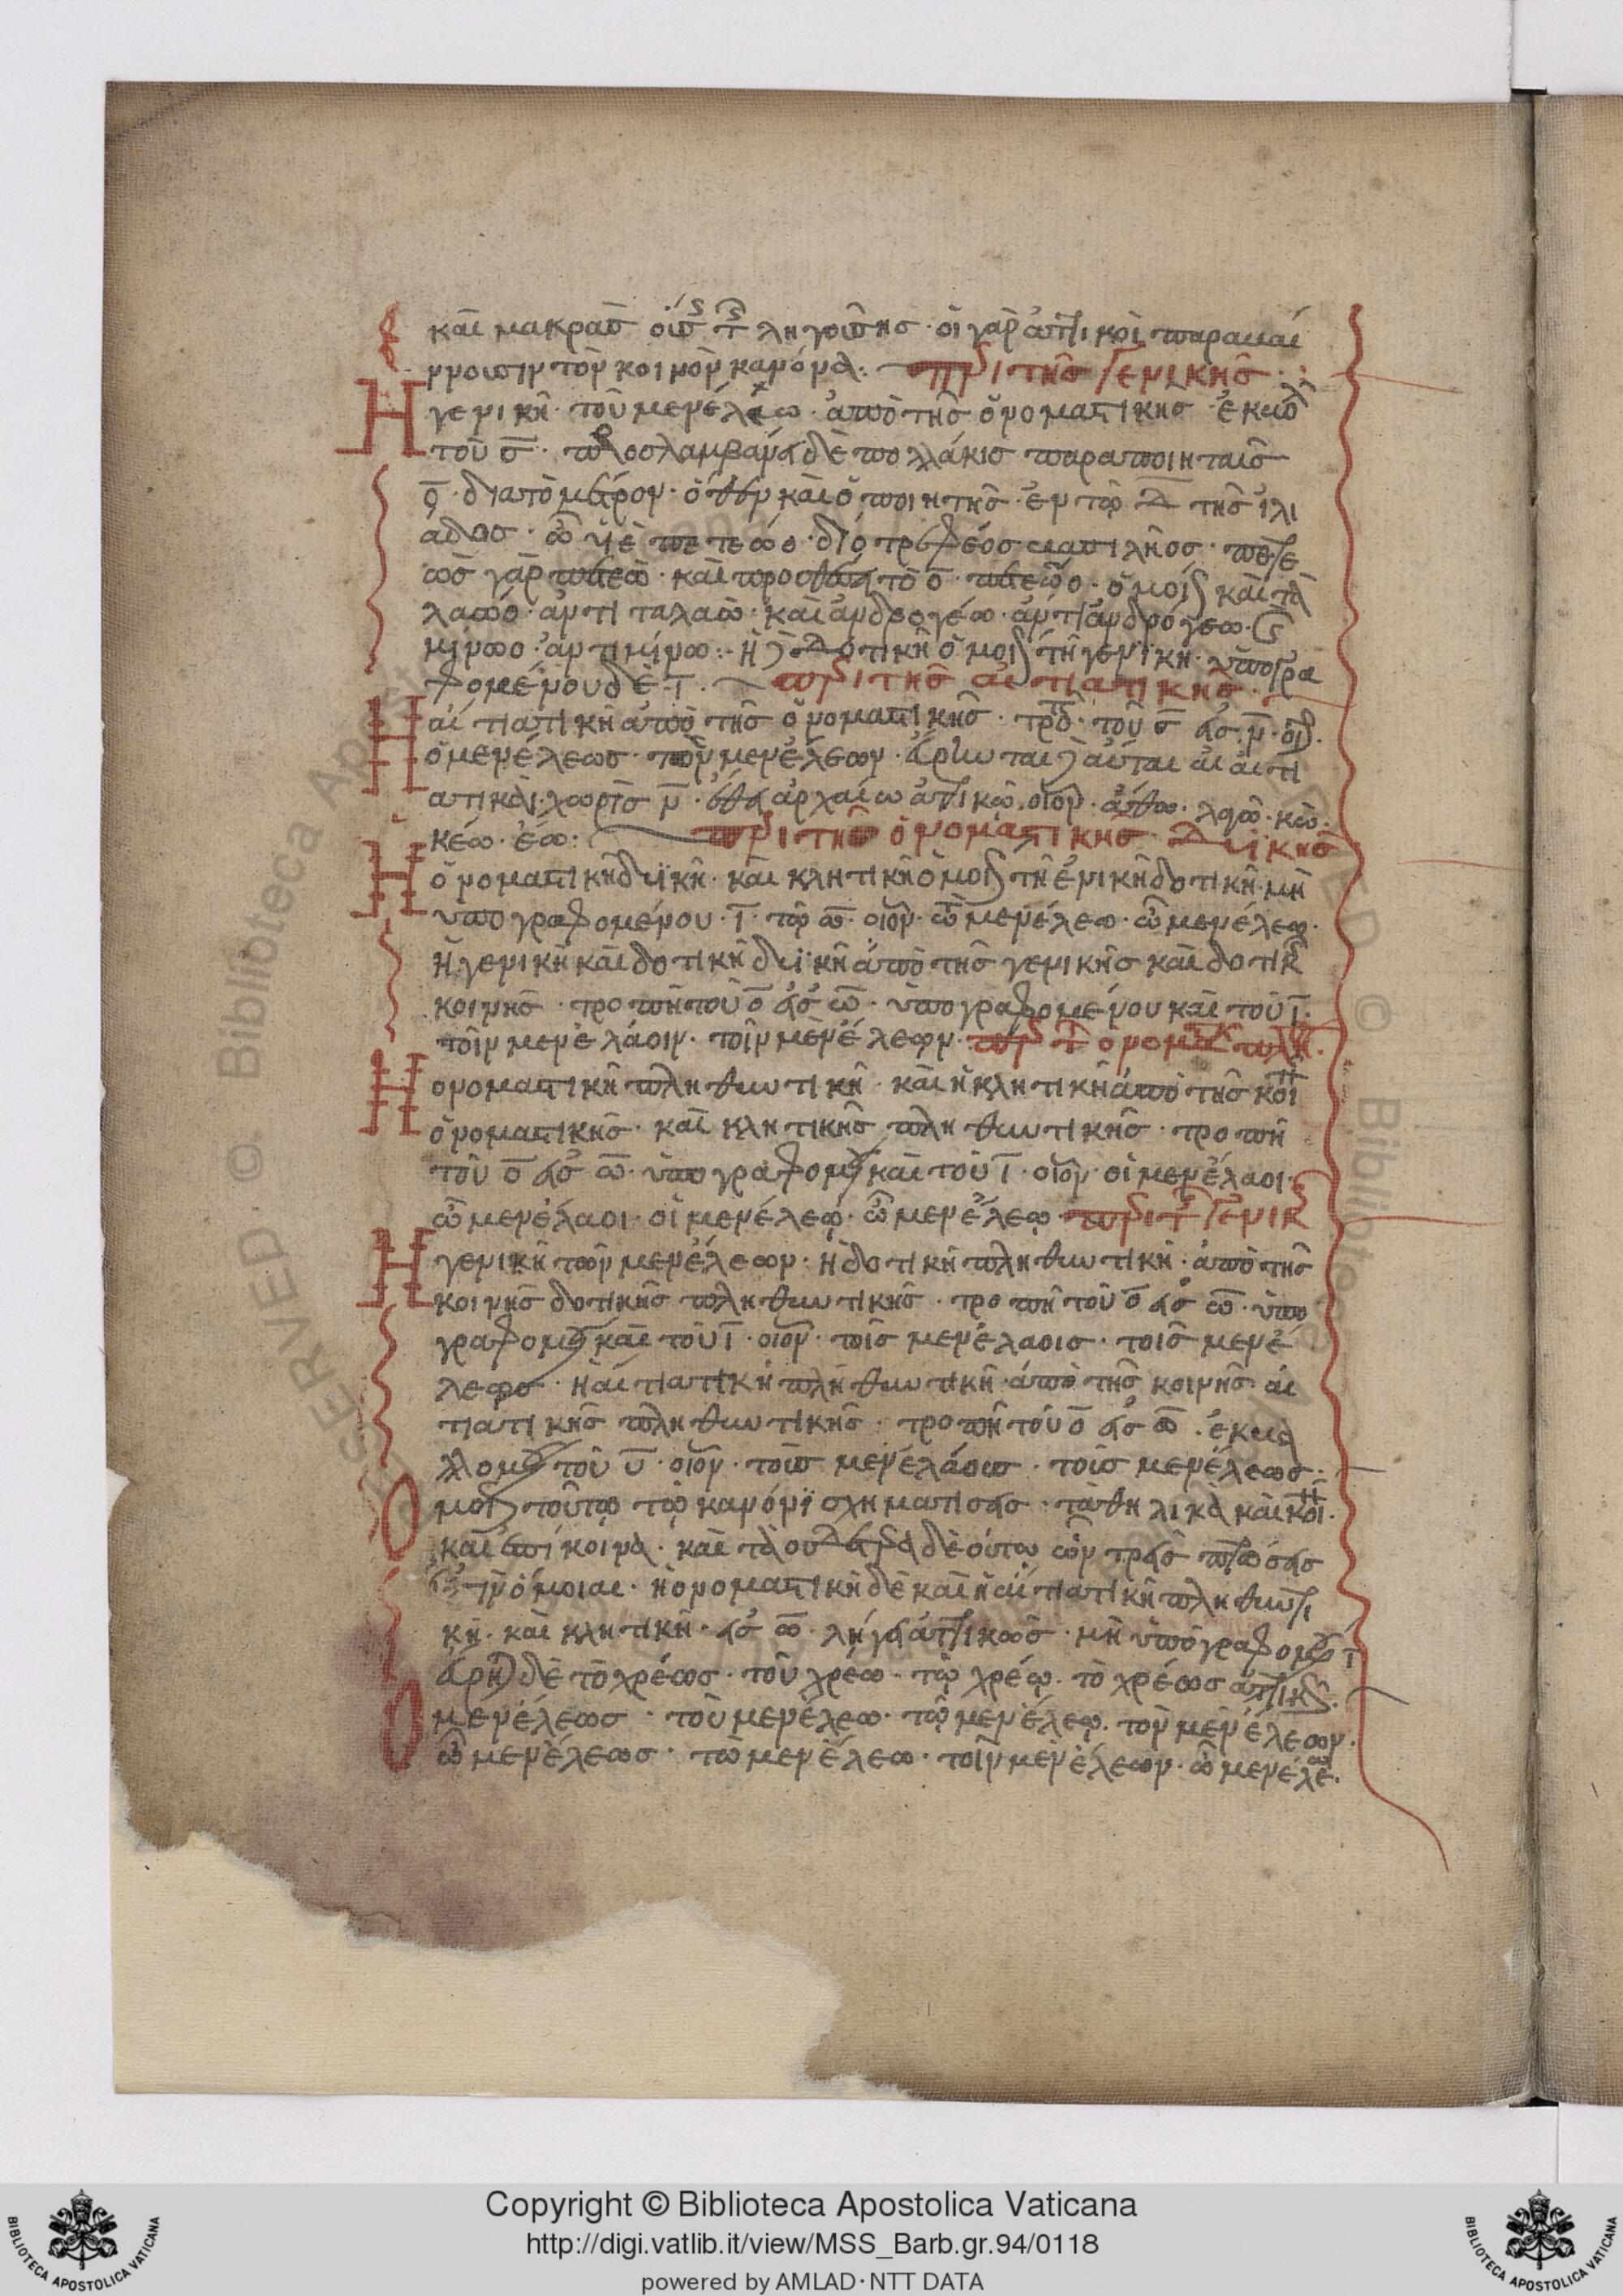 καὶ μακρᾶς οὔσης τῆς ληγούσης· οἱ γὰρ ἀττικοὶ παραβαί
νουσιν τὸν κοινὸν κανόνα: περὶ τῆς γενικῆς
Η γενικὴ τοῦ μενέλεω· ἀπὸ τῆς ὀνοματικῆς ἐκβολῆ
τοῦ σ· προσλαμβάνει δὲ πολλάκις παρὰ ποιηταῖς
ο· διὰ τὸ μέτρον· ὅθεν καὶ ὁ ποιητὴς ἐν τῷ Δ τῆς ἰλι
άδος· ὦ υἱὲ πετεώο διοτρεφέος βασιλῆος· πέτε
ὼς γὰρ πετεὼ· καὶ προσθέσει τὸ ο πετεῶο· ὁμοίως καὶ τα
λαώο· ἀντὶ ταλαὼ· καὶ ἀνδρογέω· ἀντὶ ἀνδρόγεω· καὶ
μίνωο· ἀντὶ μίνω: ἡ δὲ δοτικὴ ὁμοία τῇ γενικῇ· ὑπογρα
φομένου δὲ ι. περὶ τῆς αἰτιατικῆς
Η αἰτιατικὴ ἀπὸ τῆς ὀνοματικῆς· τροπῇ τοῦ σ εἰς ν· οἷον
ὁ μενέλεως· τὸν μενέλεων· εὕρηνται δὲ αὗται αἱ αἰτι
ατικαὶ χωρὶς ν· ἔθει ἀρχαίω ἀττικῷ οἷον· ἄθω· λαγῶ· κῶ·
κέω· έω: περὶ τῆς ὀνοματικῆς δυϊκῆς
Η ὀνοματικὴ δυϊκὴ· καὶ κλητικὴ ὁμοία τῇ ἑνικῇ δοτικῇ· μὴ
ὑπογραφομένου ι τῷ ω· οἷον· ὦ μενέλεω· ὦ μενέλεω·
Ἡ γενικὴ καὶ δοτικὴ δυϊκὴ ἀπὸ τῆς γενικῆς καὶ δοτικῆς
κοινῆς· τροπῇ τοῦ ο εἰς ω· ὑπογραφομένου καὶ τοῦ ι·
τοῖν μενελάοιν· τοῖν μενέλεῳν· περὶ τῆς ὀνοματικῆς πλη
Η ὀνοματικὴ πληθυντικὴ· καὶ ἡ κλητικὴ ἀπὸ τῆς κοινῆς
ὀνοματικῆς· καὶ κλητικῆς πληθυντικῆς· τροπῇ
τοῦ ο εἰς ω· ὑπογραφομένου καὶ τοῦ ι· οἷον· οἱ μενέλαοι·
ὦ μενέλαοι· οἱ μενέλεῳ· ὦ μενέλεῳ· περὶ τῆς γενικῆς
Η γενικὴ τῶν μενέλεων· ἡ δοτικὴ πληθυντικὴ· ἀπὸ τῆς
κοινῆς δοτικῆς πληθυντικῆς· τροπῇ τοῦ ο εἰς ω· ὑπο
γραφομένου καὶ τοῦ ι· οἷον· τοῖς μενελάοις· τοῖς μενέ
λεῳς· Ἡ αἰτιατικὴ πληθυντικὴ· ἀπὸ τῆς κοινῆς αἰ
τιατικῆς πληθυντικῆς· τροπῇ τοῦ ο εἰς ω· ἐκβα
λλομένου τοῦ υ· οἷον· τοὺς μενελάους· τοὺς μενέλεως·
Ὁμοίως τούτω τῷ κανόνι σχηματίσεις· τὰ θηλικὰ καὶ κοινὰ
καὶ ἐπίκοινα· καὶ τὰ οὐδέτερα δὲ οὕτω
ὁμοίαι· ἡ ὀνοματικὴ δὲ καὶ ἡ αἰτιατικὴ πληθυντι
κὴ· καὶ κλητικὴ· εἰς ω λήγει ἀττικῶς· μὴ ὑπογραφομένου ι
εὕρηται δὲ τὸ χρέως· τοῦ χρέω· τῷ χρέῳ· τὸ χρέως ἀττικῶς
Ὁ μενέλεως· τοῦ μενέλεω· τῷ μενέλεῳ· τὸν μενέλεων·
ὦ μενέλεως· τὼ μενέλεω· τοῖν μενέλεῳν· ὦ μενέλεω·
Copyright © Biblioteca Apostolica Vaticana
http://digi.vatlib.it/view/MSS_Barb.gr.94/0118
powered by AMLAD·NTT DATA
BIBLIOTECA APOSTOLICA VATICANA
BIBLIOTECA APOSTOLICA VATICANA